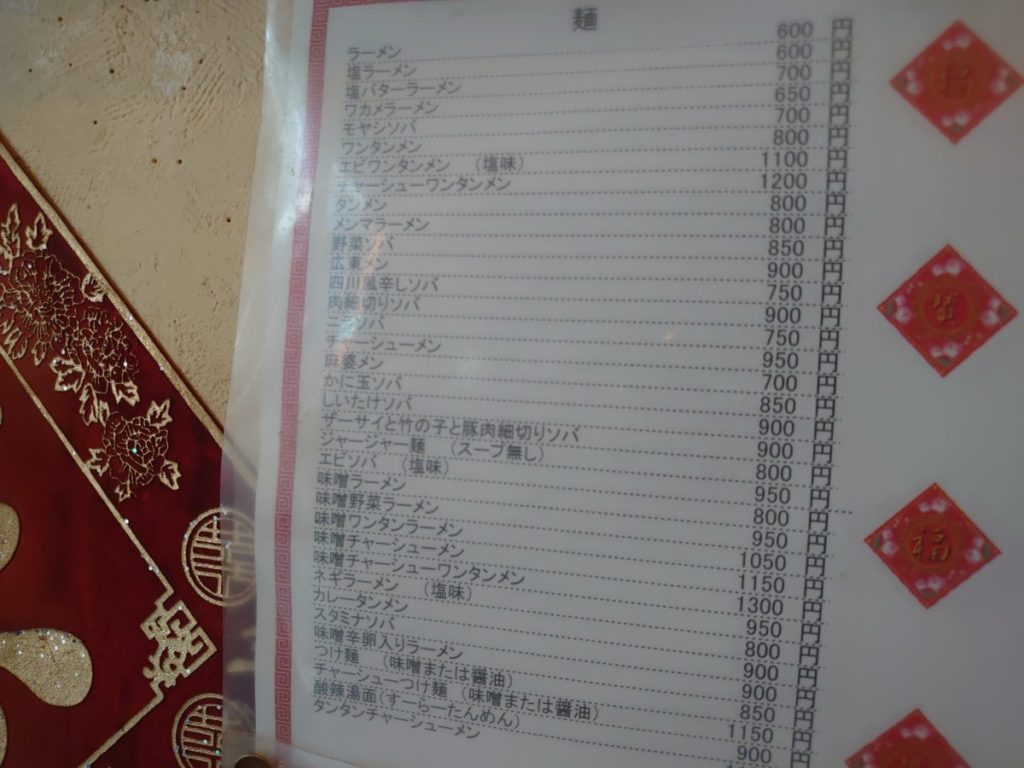 麺
ラーメン 600 円
塩ラーメン 600 円
塩バターラーメン 700 円
ワカメラーメン 650 円
モヤシソバ 700 円
ワンタンメン 800 円
エビワンタンメン (塩味) 1100 円
チャーシューワンタンメン 1200 円
タンメン 800 円
メンマラーメン 800 円
野菜ソバ 850 円
広東メン 900 円
四川風辛しソバ 750 円
肉細切りソバ 900 円
ニラソバ 750 円
チャーシューメン 950 円
麻婆メン 700 円
かに玉ソバ 850 円
しいたけソバ 900 円
ザーサイと竹の子と豚肉細切りソバ 900 円
ジャージャー麺 (スープ無し) 800 円
エビソバ (塩味) 950 円
味噌ラーメン 800 円
味噌野菜ラーメン 950 円
味噌ワンタンラーメン 1050 円
味噌チャーシューメン 1150 円
味噌チャーシューワンタンメン 1300 円
ネギラーメン (塩味) 950 円
カレータンメン 800 円
スタミナソバ 900 円
味噌辛卵入りラーメン 900 円
つけ麺 (味噌または醤油) 850 円
チャーシューつけ麺 (味噌または醤油) 1150 円
酸辣湯面(すーらーたんめん) 900 円
タンタンチャーシューメン
福